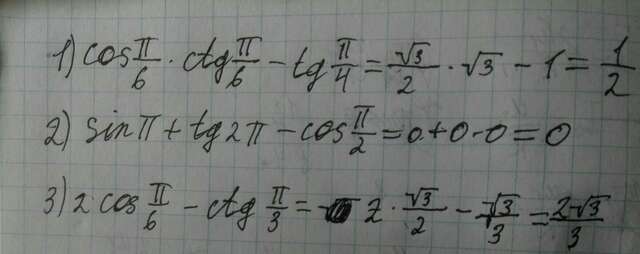 1) cos π/6 · ctg π/6 - tg π/4 = √3/2 · √3 - 1 = 1/2
2) sin π + tg 2π - cos π/2 = 0 + 0 - 0 = 0
3) 2 cos π/6 - ctg π/3 = 2 · √3/2 - √3/3 = 2√3/3